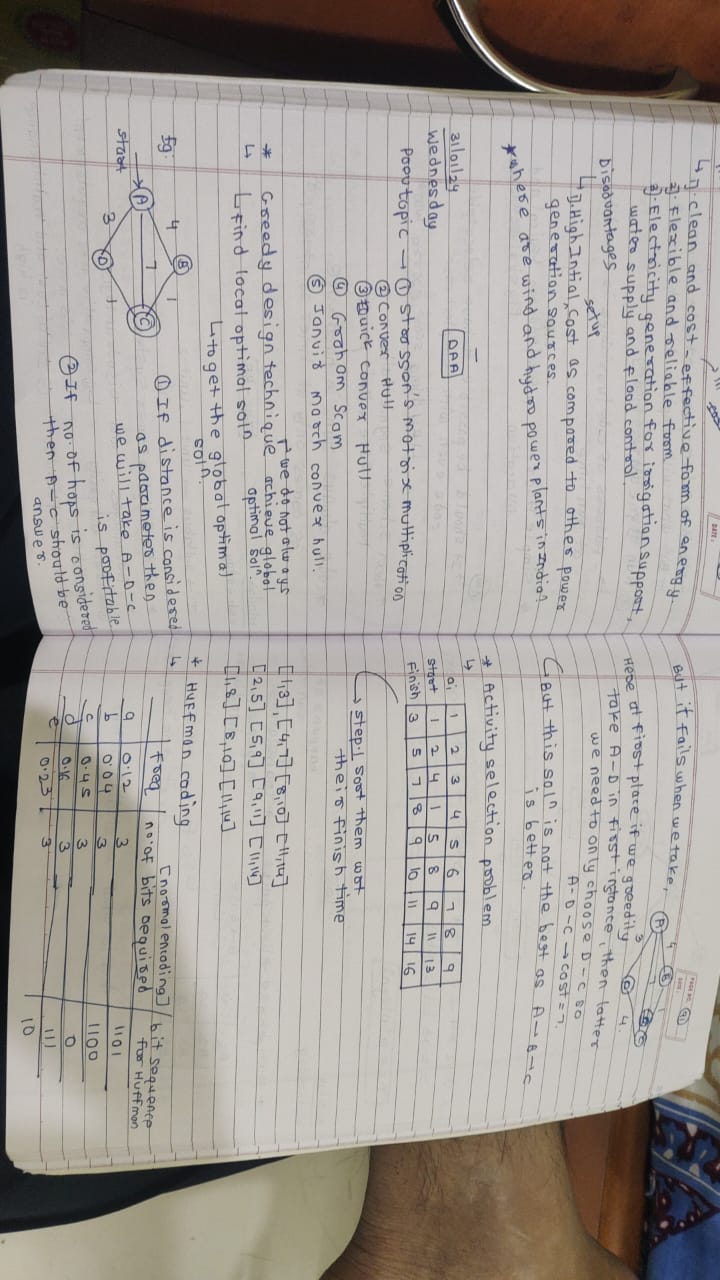 DATE :
↳ 1). clean and cost-effective form of energy.
2). Flexible and reliable form
3). Electricity generation for irrigation support,
water supply and flood control.
Disadvantages
setup
↳ 1). High Intial, Cost as compared to other power
generation sources.
* where are wind and hydro power plants in India?
31/01/24
DAA
Wednesday
Prev topic → ① strassen's matrix multiplication
② Convex Hull
③ Quick convex Hull
④ Graham Scam
⑤ Janvid march convex hull.
* Greedy design technique
→ we do not always
achieve global
optimal solⁿ.
↳ find local optimal solⁿ
↳ to get the global optimal
solⁿ.
Eg:
start
A
B
C
D
4
1
7
3
1
① If distance is considered
as parameter then
we will take A-D-C
is profitable
② If no. of hops is considered
then A-C should be
answer.
PAGE NO. 91
DATE :
But it fails when we take,
A
B
D
C
4
1
7
3
4.
Here at first place if we greedily
take A-D in first instance, then latter
we need to only choose D-C so
A-D-C → cost = 7.
But this solⁿ is not the best as A→B→C
is better.
* Activity selection problem
↳
ai 1 2 3 4 5 6 7 8 9
start 1 2 4 1 5 8 9 11 13
Finish 3 5 7 8 9 10 11 14 16
→ step.1 sort them wrt
their finish time
[1,3], [4,7] [8,10] [11,14]
[2,5] [5,9] [9,11] [11,14]
[1,8] [8,10] [11,14]
* Huffman coding
↳
Freq [normal encoding] no. of bits required bit sequence for Huffman
a 0.12 3 1101
b 0.04 3 1100
c 0.45 3 0
d 0.16 3 111
e 0.23 3 10